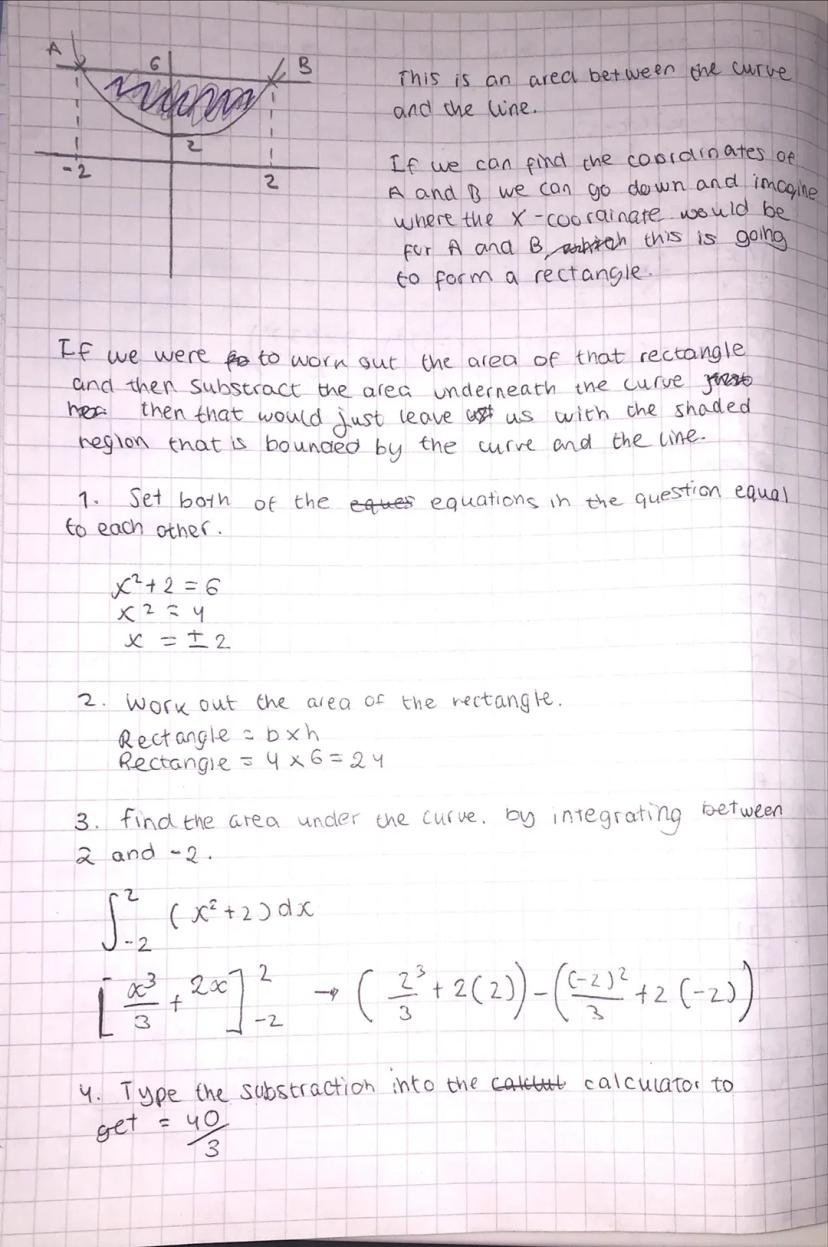 A 6 B
2
-2 2
This is an area between the curve
and the line.
If we can find the coordinates of
A and B we can go down and imagine
where the x-coordinate would be
for A and B, which this is going
to form a rectangle.
If we were to to work out the area of that rectangle
and then substract the area underneath the curve just
her then that would just leave us with the shaded
region that is bounded by the curve and the line.
1. Set both of the eques equations in the question equal
to each other.
x²+2 = 6
x² = 4
x = ±2
2. Work out the area of the rectangle.
Rectangle = b×h
Rectangle = 4 × 6 = 24
3. find the area under the curve. by integrating between
2 and -2.
∫₋₂² (x²+2) dx
[x³/3 + 2x]²₋₂ → (2³/3 + 2(2)) - ((-2)²/3 + 2(-2))
4. Type the substraction into the calclut calculator to
get = 40/3